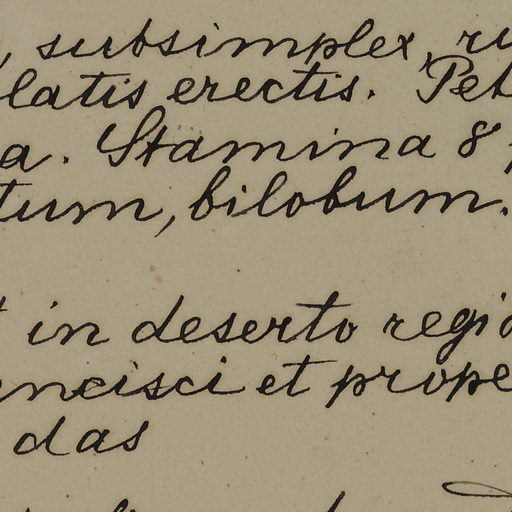 , subsimplex, ru
latis erectis. Pet
a. Stamina 8
tum, bilobum.
in deserto regio
ncisci et prope
das